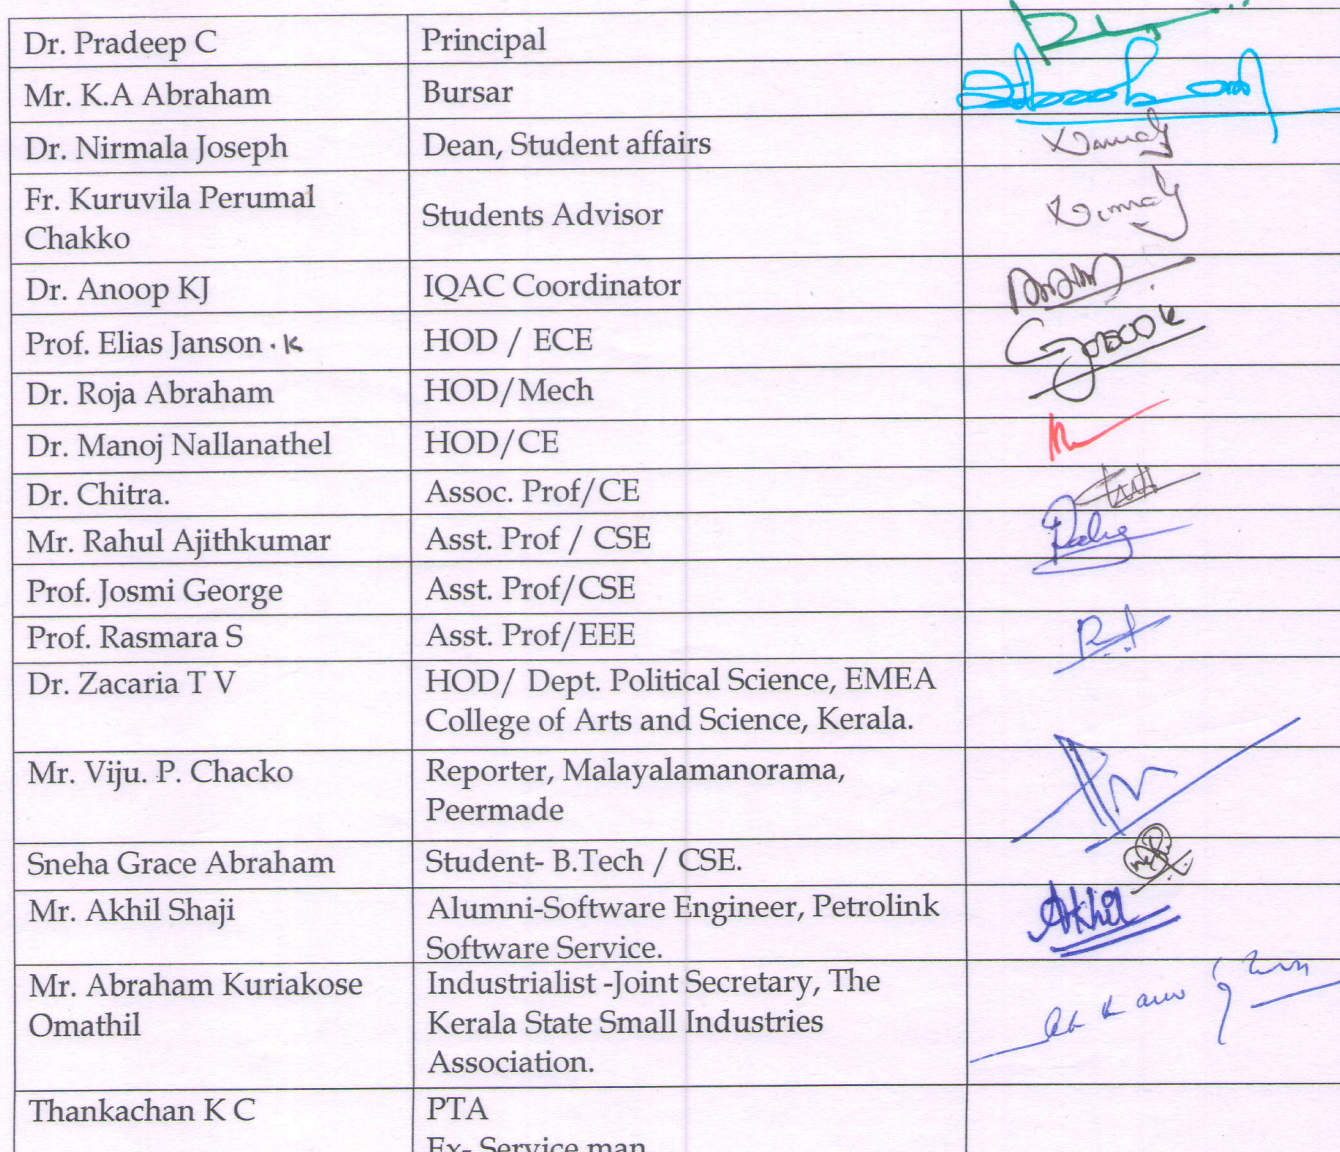 Dr. Pradeep C Principal
Mr. K.A Abraham Bursar
Dr. Nirmala Joseph Dean, Student affairs
Fr. Kuruvila Perumal
Chakko
Students Advisor
Dr. Anoop KJ IQAC Coordinator
Prof. Elias Janson . K HOD / ECE
Dr. Roja Abraham HOD/Mech
Dr. Manoj Nallanathel HOD/CE
Dr. Chitra. Assoc. Prof/CE
Mr. Rahul Ajithkumar Asst. Prof / CSE
Prof. Josmi George Asst. Prof/CSE
Prof. Rasmara S Asst. Prof/EEE
Dr. Zacaria T V HOD/ Dept. Political Science, EMEA
College of Arts and Science, Kerala.
Mr. Viju. P. Chacko Reporter, Malayalamanorama,
Peermade
Sneha Grace Abraham Student- B.Tech / CSE.
Mr. Akhil Shaji Alumni-Software Engineer, Petrolink
Software Service.
Akhil
Mr. Abraham Kuriakose
Omathil
Industrialist -Joint Secretary, The
Kerala State Small Industries
Association.
Thankachan K C PTA
Ex- Service man